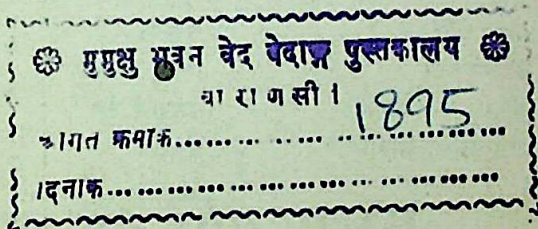 मुमुक्षु भुवन वेद वेदाङ्ग पुस्तकालय
वा रा ण सी ।
आगत क्रमांक............................1895
दिनांक.......................................